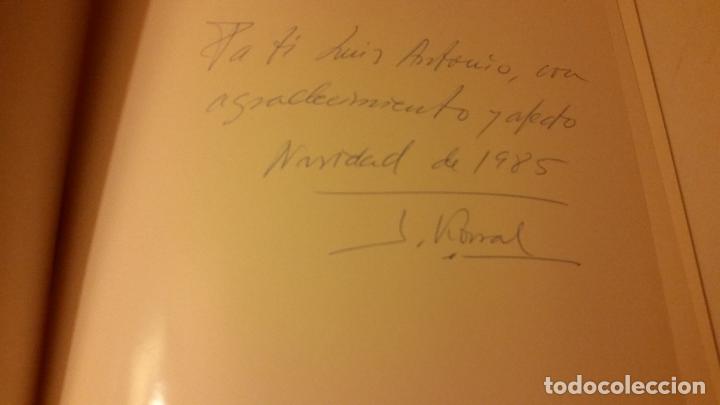 Pa ti Luis Antonio, con
agradecimiento y afecto
Navidad de 1985
todocoleccion